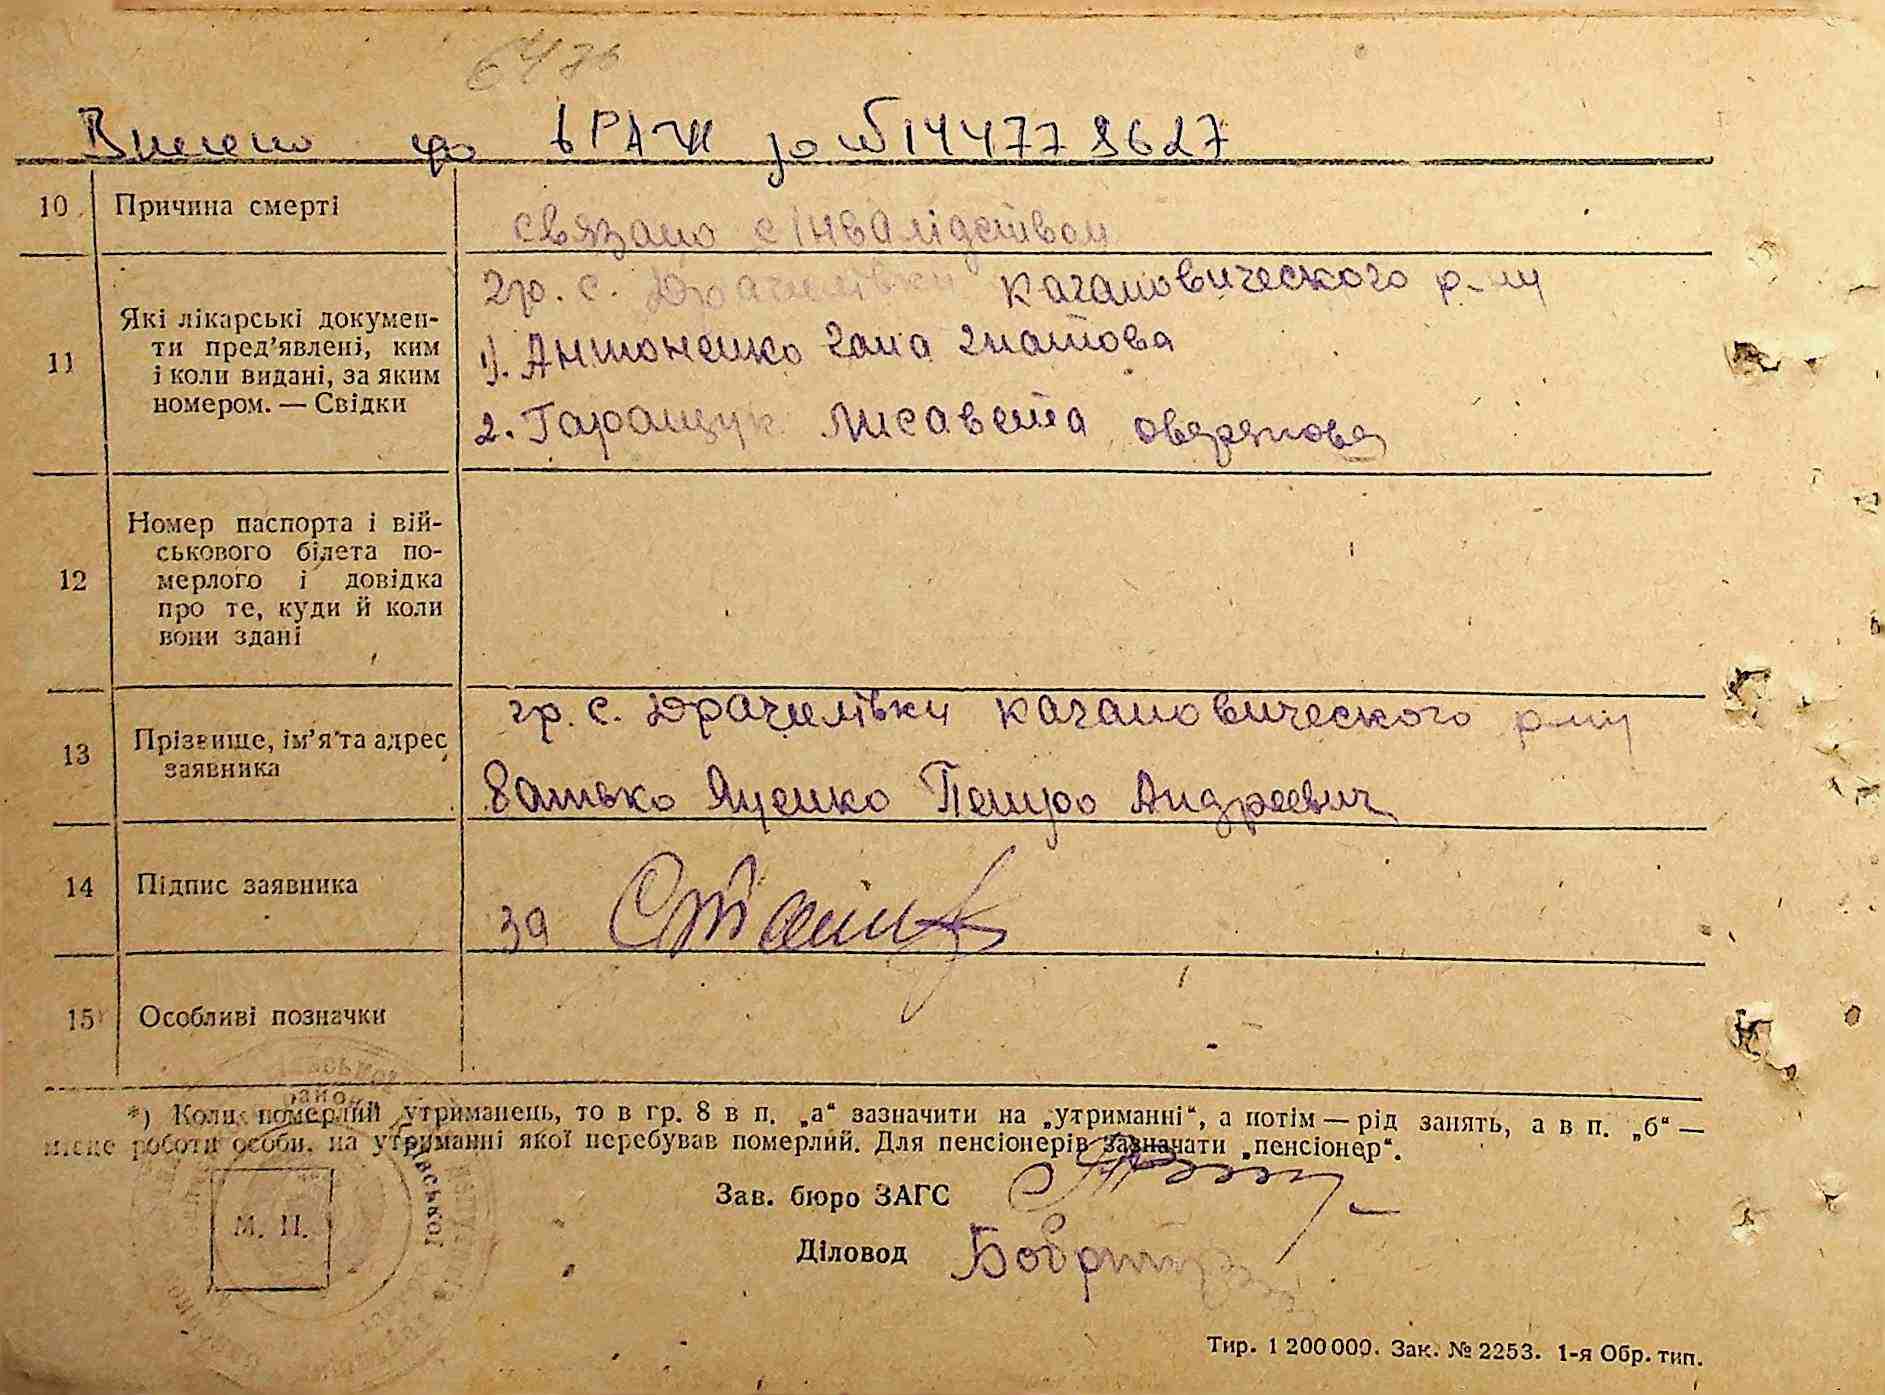 6476
Внесено до ДРАЦС за №144779627
10 Причина смерті
связано с інвалідством
11 Які лікарські докумен-
ти пред’явлені, ким
і коли видані, за яким
номером. — Свідки
гр. с. Драчилівки Кагановического р-ну
1). Антоненко Гана Гнатова
2. Гаращук Лисавета
12 Номер паспорта і вій-
ськового білета по-
мерлого і довідка
про те, куди й коли
вони здані
13 Прізвище, ім’я та адрес
заявника
гр. с. Драчилівки Кагановического р-ну
батько Яценко Петро Андреевич
14 Підпис заявника
за
15 Особливі позначки
*) Коли померлий утриманець, то в гр. 8 в п. „а“ зазначити на „утриманні“, а потім — рід занять, а в п. „б“ —
місце роботи особи, на утриманні якої перебував померлий. Для пенсіонерів зазначати „пенсіонер“.
Зав. бюро ЗАГС
М. П.
Діловод
Тир. 1 200 000. Зак. № 2253. 1-я Обр. тип.